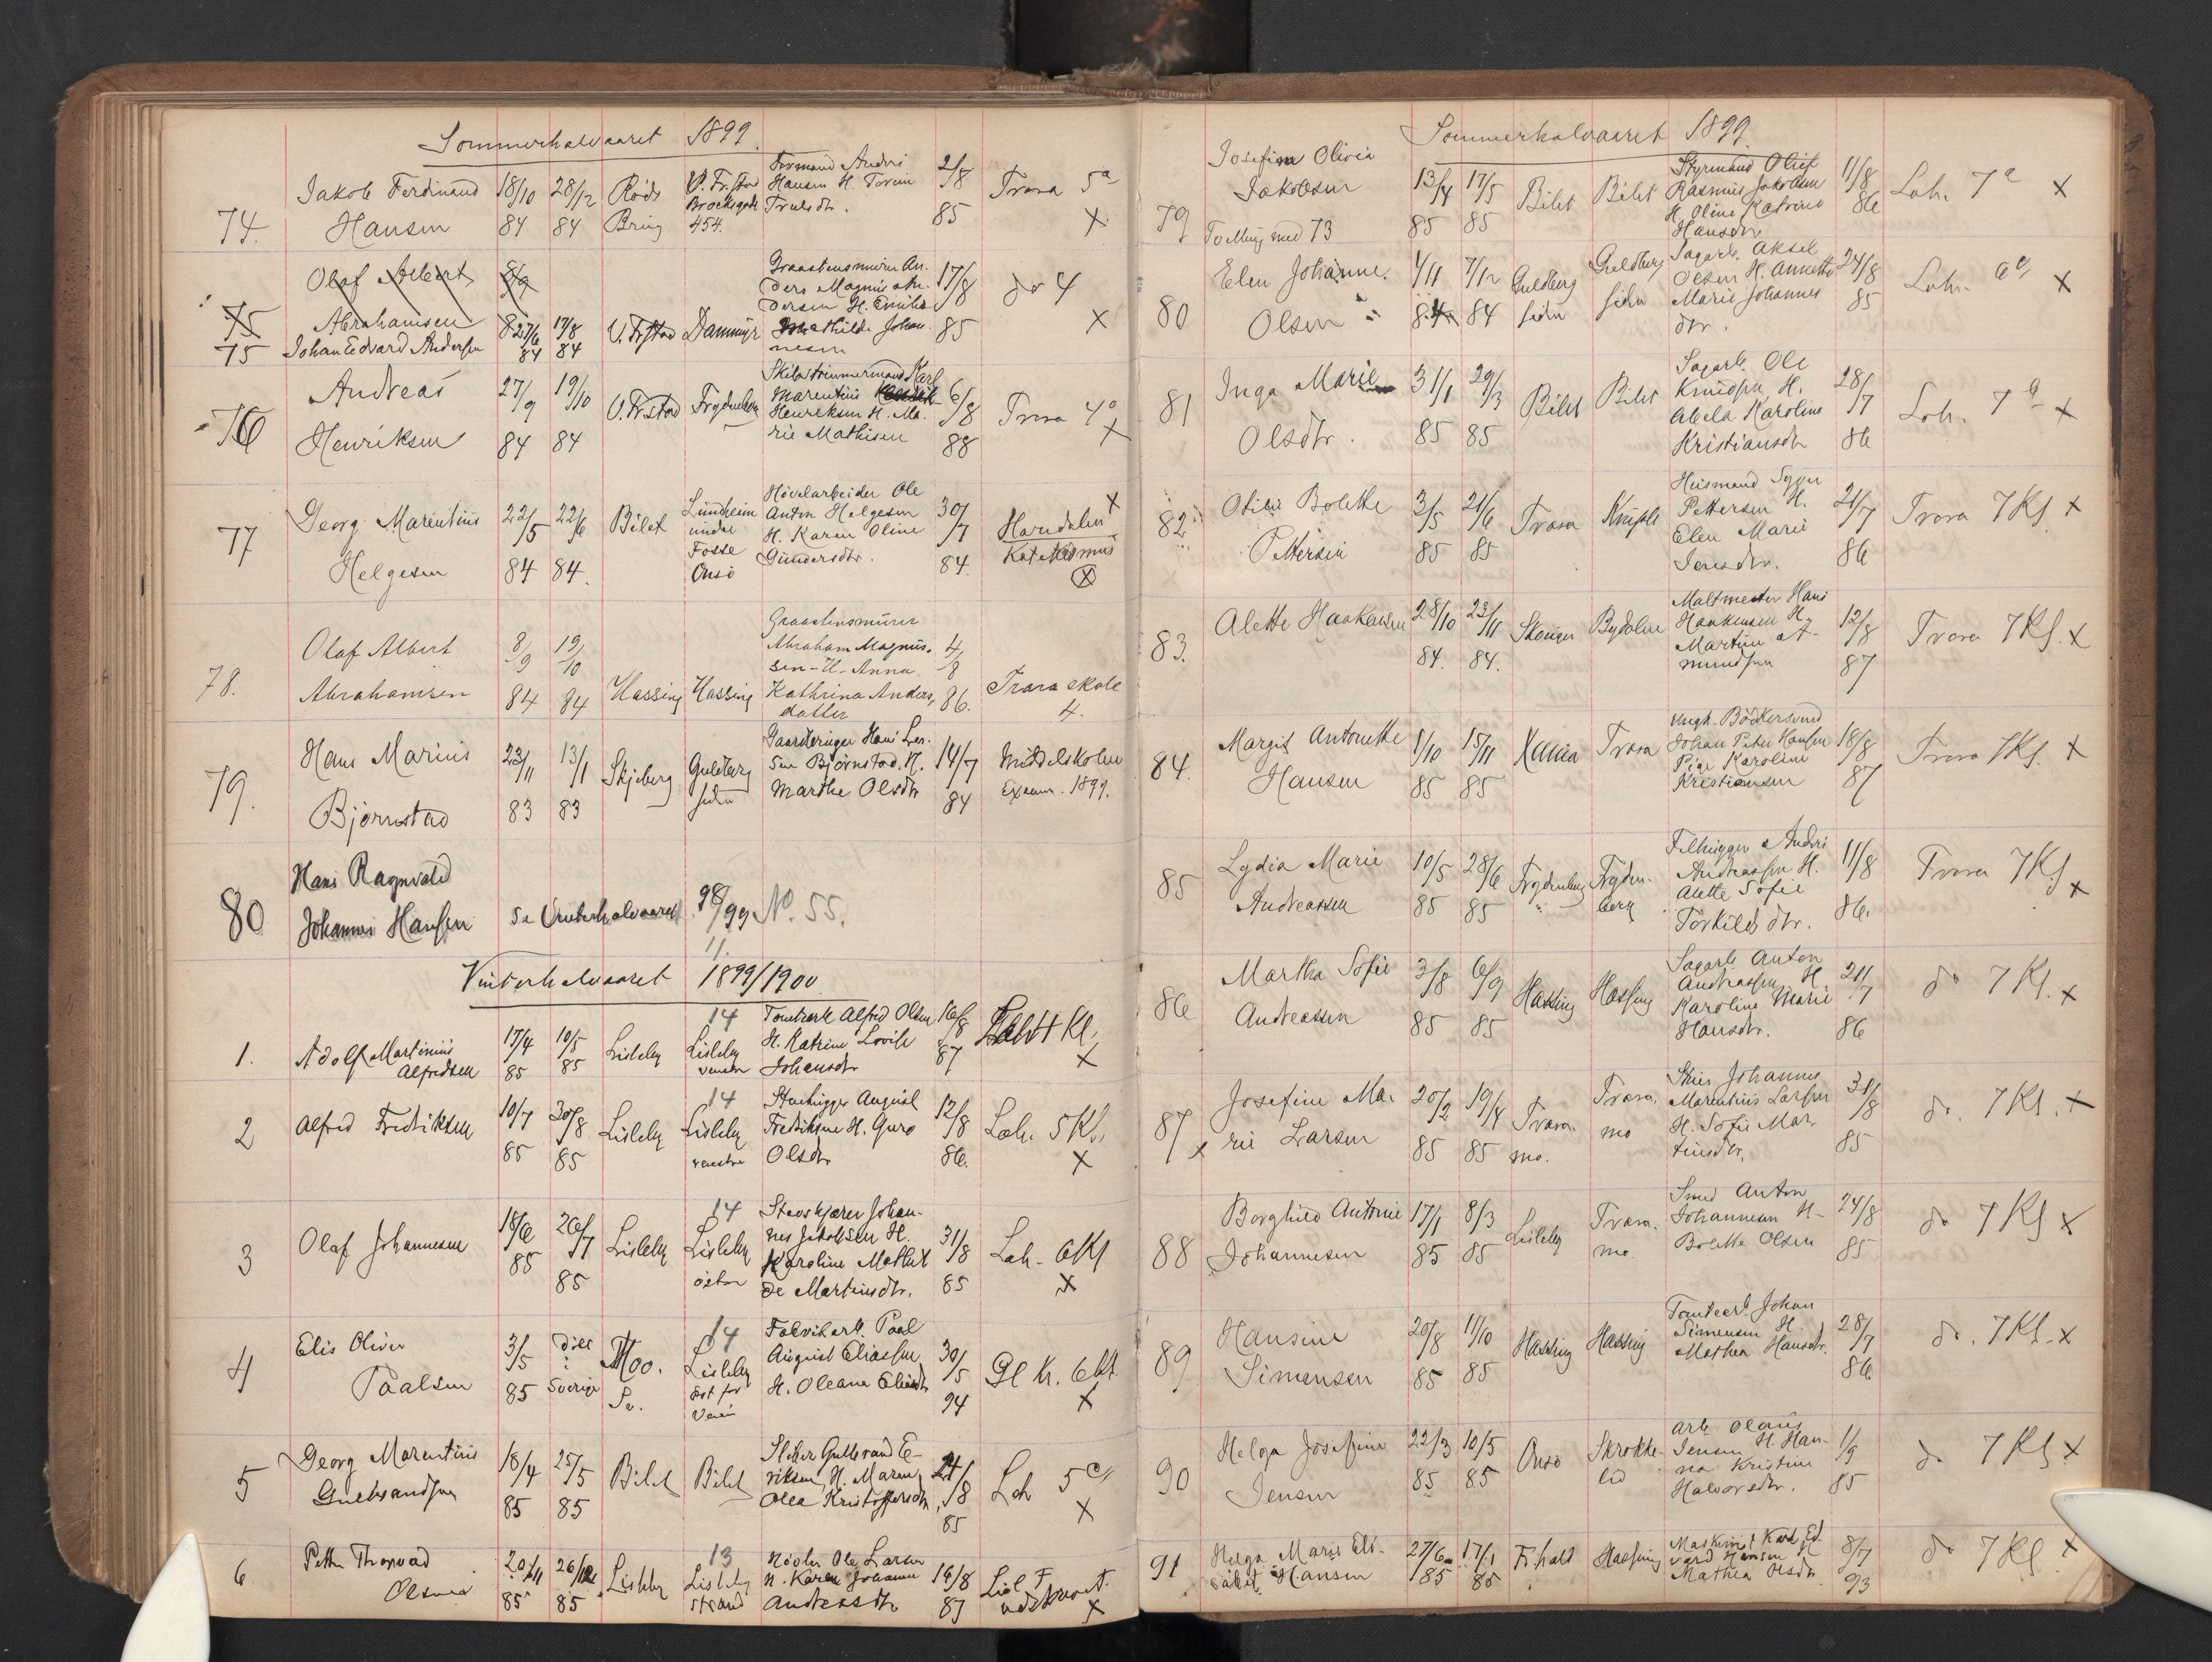 Sommerhalvaaret 1899.
74.
Jakob Ferdinand
Hansen
18/10
84
28/12
84
Röds
Bring
V. Fr.stad
Brocksgade
454.
Formand Anders
Hansen H. Torine
Trulsdtr.
2/8
85
Trara 5a
X
75
Olaf Albert
Abrahamsen
8/9
75
Johan Edvard Andersen
27/6
84
17/8
84
V. Frstad
Dammyr
Graastensmurer An-
ders Magnus An-
dersen H. Emilie
Mathilde Johan-
nesen
17/8
85
do 4
X
76
Andreas
Henriksen
27/9
84
19/10
84
V. Fr.stad
Frydenberg
Skibstømmermand Karl
Marentius
Henriksen H. Ma-
rie Mathisen
6/8
88
Trara 4a
X
77
Georg Marentius
Helgesen
22/5
84
22/6
84.
Bilet
Lundheim
under
Fosse
Onsö
Hövelarbeider Ole
Anton Helgesen
H. Karen Oline
Gundersdtr.
30/7
84.
X
Haredalen
Katekismus
X
78.
Olaf Albert
Abrahamsen
8/9
84
19/10
84
Hassing
Hassing
Graastensmurer
Abraham Magnus-
sen - H. Anna
Kathrina Anders-
datter
4/8
86.
Trara skole
4.
79.
Hans Marius
Björnstad
23/11
83
13/1
83
Skjeberg
Guldberg
siden
Gaardbruger Hans Lar-
sen Bjørnstad, H.
Marthe Olsdtr
14/7
84
Middelskolen
Examen. 1899.
80
Hans Ragnvald
Johannes Hansen
Se Vinterhalvaaret 98/99 No. 55.
11.
Vinterhalvaaret 1899/1900
1.
Adolf Martinius
Alfredsen
17/4
85
10/5
85
Lisleby
14
Lisleby
venstre
Tomtearb Alfred Olsen
H. Katrine Lovise
Johansdtr
16/8
87
Kl.
X
2
Alfred Fredriksen
10/7
85
30/8
85
Lisleby
14
Lisleby
venstre
Stenhugger August
Fredriksen H. Guro
Olsdtr
12/8
86.
Lah. 5 Kl.
X
3
Olaf Johannesen
18/6
85
26/7
85
Lisleby
14
Lisleby
östre
Stavskjærer Johan-
nes Jakobsen H.
Karoline Mathil
de Martinsdtr.
31/8
85
Lah. 6 Kl
X
4
Elis Oliver
Paalsen
3/5
85
Sverige
Moo.
Sv.
14
Lisleby
öst for
Veien
Fabrikarb. Paal
August Eliassen
H. Oleana Eliasdtr
30/5
94
Gl Kr. 6 Kl.
X
5
Georg Marentius
Gulbrandsen
18/4
85
25/5
85
Bilet
Bilet
Sliber Gulbrand E-
riksen, H. Maren
Olea Kristoffersdtr,
24/8
85
Lah 5a
X
6
Petter Thorvald
Olsen
20/11
85
26/12
85
Lisleby
13
Lisleby
strand
Høvler Ole Larsen
H. Karen Johanne
Andreasdtr
16/8
87
Lisl F
udskrevet.
X
Sommerhalvaaret 1899.
79
Josefine Olivia
Jakobsen
Tvilling med 73
13/4
85
17/5
85
Bilet
Bilet
Styrmand Oluf
Rasmus Jakobsen
H. Oline Katrine
Hansdtr
11/8
86
Lah. 7a
X
80
Elen Johanne
Olsen
1/11
84
7/12
84
Guldberg
siden
Guldberg
siden
Sagarb. Aksel
Olsen H. Annette
Marie Johannes
dtr.
24/8
85
Lah. 6a
X
81
Inga Marie
Olsdtr.
31/1
85
29/3
85
Bilet
Bilet
Sagarb. Ole
Knudsen H.
Abela Karoline
Kristiansdtr
28/7
86
Lah. 7b
X
82
Otilie Bolette
Pettersen
3/5
85
21/6
85
Trara
Kniple
Husmand Syver
Pettersen H.
Elen Marie
Jensdtr.
21/7
86
Trara 7 Kl.
X
83.
Alette Haakensen
28/10
84.
23/11
84.
Skonger
Bydalen
Maltmester Hans
Haakensen H.
Martine A-
mundsen
12/8
87
Trara 7 Kl.
X
84.
Margit Antonette
Hansen
1/10
85
15/11
85
Trara
Ungk. Bödkersvend
Johan Peter Hansen
Pige Karoline
Kristiansen
18/8
87
Trara 7 Kl.
X
85
Lydia Marie
Andreassen
10/5
85
28/6
85
Frydenberg
Fryden-
berg
Filhugger Anders
Andreassen H.
Alette Sofie
Torkilds dtr.
11/8
86.
Trara 7 Kl
X
86
Martha Sofie
Andreassen
3/8
85
6/9
85
Hassing
Hassing
Sagarb Anton
Andreassen H.
Karoline Marie
Hansdtr.
21/7
86
do 7 Kl.
X
87
X
Josefine Ma-
rie Larsen
20/2
85
19/4
85
Trara
mo.
Trara
mo
Johannes
Marentius Larsen
H. Sofie Mar-
tinsdtr.
31/8
85
do. 7 Kl.
X
88
Borghild Antonie
Johannesen
17/1
85
8/3
85
Lisleby
Trara
mo.
Smed Anton
Johannesen H-
Bolette Olsen
24/8
85
do 7 Kl
X
89
Hansine
Simensen
20/8
85
11/10
85
Hassing
Hassing
Tomtearb. Johan
Simensen H.
Mathea Hansdtr.
28/7
86.
do. 7 Kl.
X
90
Helga Josefine
Jensen
22/3
85
10/5
85
Onsö
Skrokke-
lid
Arb Olaus
Jensen H. Han-
na Kristine
Halvorsdtr.
1/9
85
do 7 Kl
X
91
Helga Marie Eli-
sabet Hansen
27/6
85
17/1
85
Fr.hald
Hassing
Maskinist Karl Ed-
vard Hansen H.
Mathea Olsdtr.
8/7
93
do 7 Kl.
X